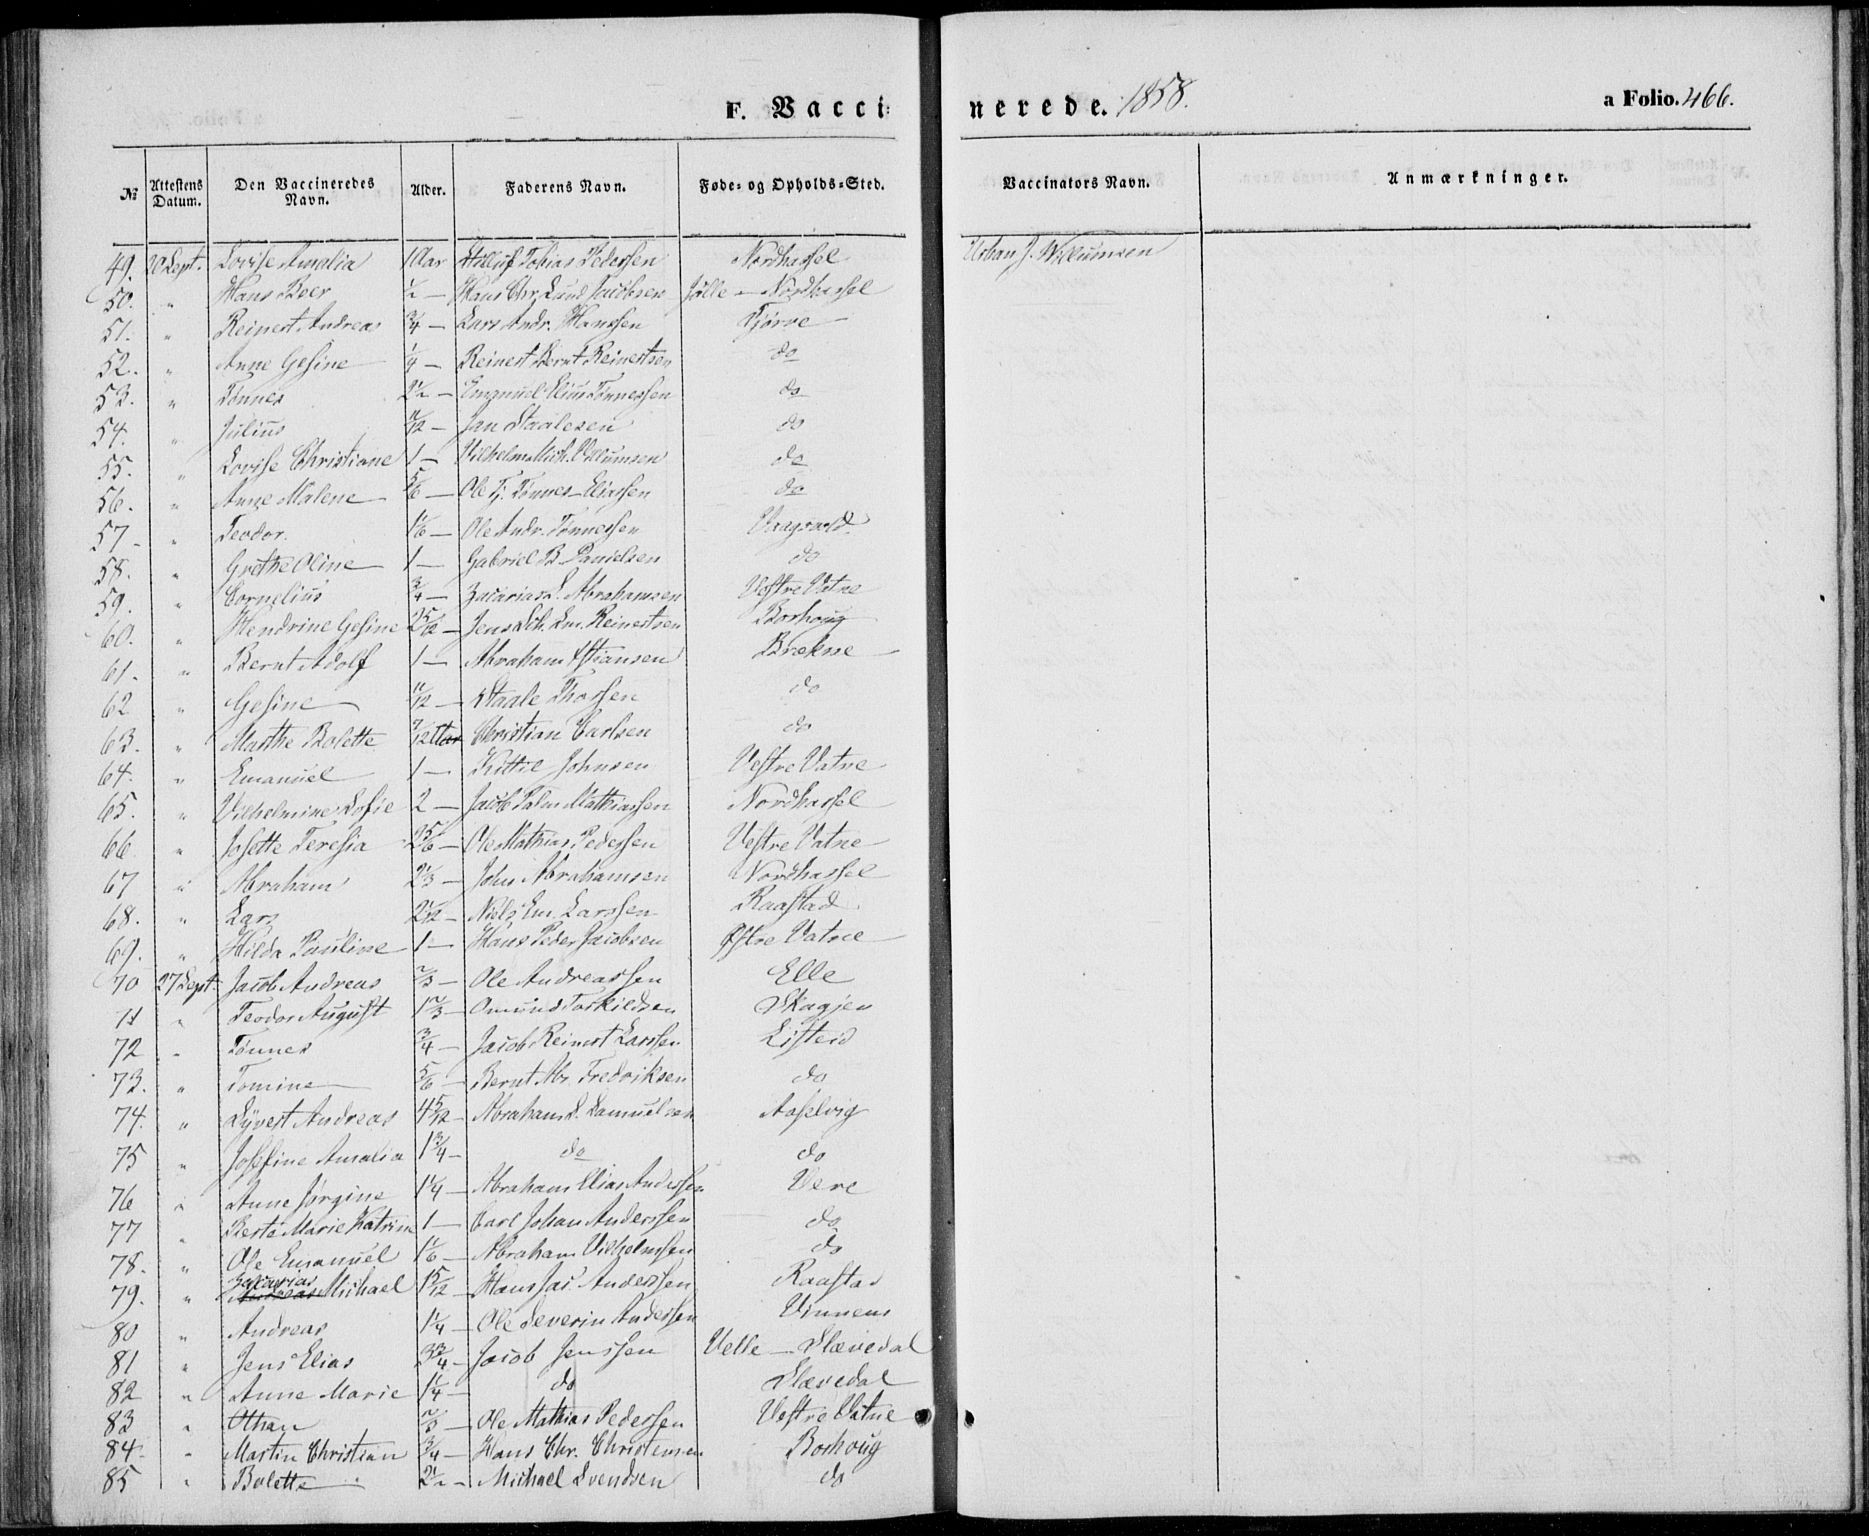 F. Vacci-
nerede. 1858.
a Folio. 466.
№ | Attestens Datum. | Den Vaccineredes Navn. | Alder. | Faderens Navn. | Føde- og Opholds-Sted. | Vaccinators Navn. | Anmærkninger.
49. 20 Sept. Lovise Amalia 1 Aar Tobias Pederssen Nordhassel Urban J. Willumsen
50. " Hans Beer ½ — Hans Chr. Lund Jacobsen Jølle — Nordhassel
51. " Reinert Andreas ¾ — Lars Andr. Hanssen Tjørve
52. " Anne Gesine ¼ — Reinert Bernt Reinertsen do
53. " Tønnes 2½ — Emanuel Elius Tønnessen do
54. " Julius 11/12 — Jan Staalesen do
55. " Lovise Christiane 1 — Vilhelm Mich. Villumsen do
56. " Anne Malene 5/6 — Ole Tj. Tønnes Eliassen do
57. " Teodor. 1 1/6 — Ole Andr. Tønnessen Vaagsvold.
58. " Grethe Oline 1 — Gabriel B. Danielsen do
59. " Cornelius ¾ — Zacarias L. Abrahamsen Vestre Vatne
60. " Hendrine Gesine 2 5/12 — Jens Em. Reinertsen Borhoug
61. " Bernt Adolf 1 — Abraham Stiansen Brekne
62 " Gesine 11/12 — Staale Thorssen do
63. " Marthe Bolette 7/12 Aar Christian Carlsen do
64. " Emanuel 1 — Kittil Johnsen Vestre Vatne
65. " Vilhelmine Sofie 2 — Jacob Palm Mathiassen Nordhassel
66 " Josette Teresia 2 5/6 — Ole Mathias Pederssen Vestre Vatne
67 " Abraham 2 1/3 — John Abrahamsen Nordhassel
68. " Lars 2 1/12 — Niels Em. Larssen Raastad
69. " Hilda Pauline 1 — Hans Peder Jacobsen Østre Vatne
70 27 Sept. Jacob Andreas 2/3 — Ole Andreassen Elle
71 " Teodor August 1 2/3 — Omund Torkildsen Skagjen
72 " Tønnes ¾ — Jacob Reinert Larssen Listeid
73. " Tomine 5/6 — Bernt Abr. Fredriksen do
74. " Syvert Andreas 4 5/12 — Abraham S. Samuelsen Aaselvig
75 " Josefine Amalia 1¾ — do do
76 " Anne Jørgine 1¼ — Abraham Elias Anderssen Vere
77 " Berte Marie Katrine 1 — Carl Johan Anderssen do
78. " Ole Emanuel 1 1/6 — Abraham Vilhelmssen do
79. " Zacarias Michael 1 5/12 — Hans Jac. Anderssen Raastad
80 " Andreas 1¼ — Ole Severin Anderssen Vinnem
81 " Jens Elias 3¾ — Jacob Jenssen Velle — Slævedal
82 " Anne Marie 1¼ — do Slævedal
83 " Othan 2/3 — Ole Mathias Pederssen Vestre Vatne
84. " Martin Christian ¾ — Hans Chr. Christensen Borhoug
85 " Bolette 2½ — Michael Svendsen do